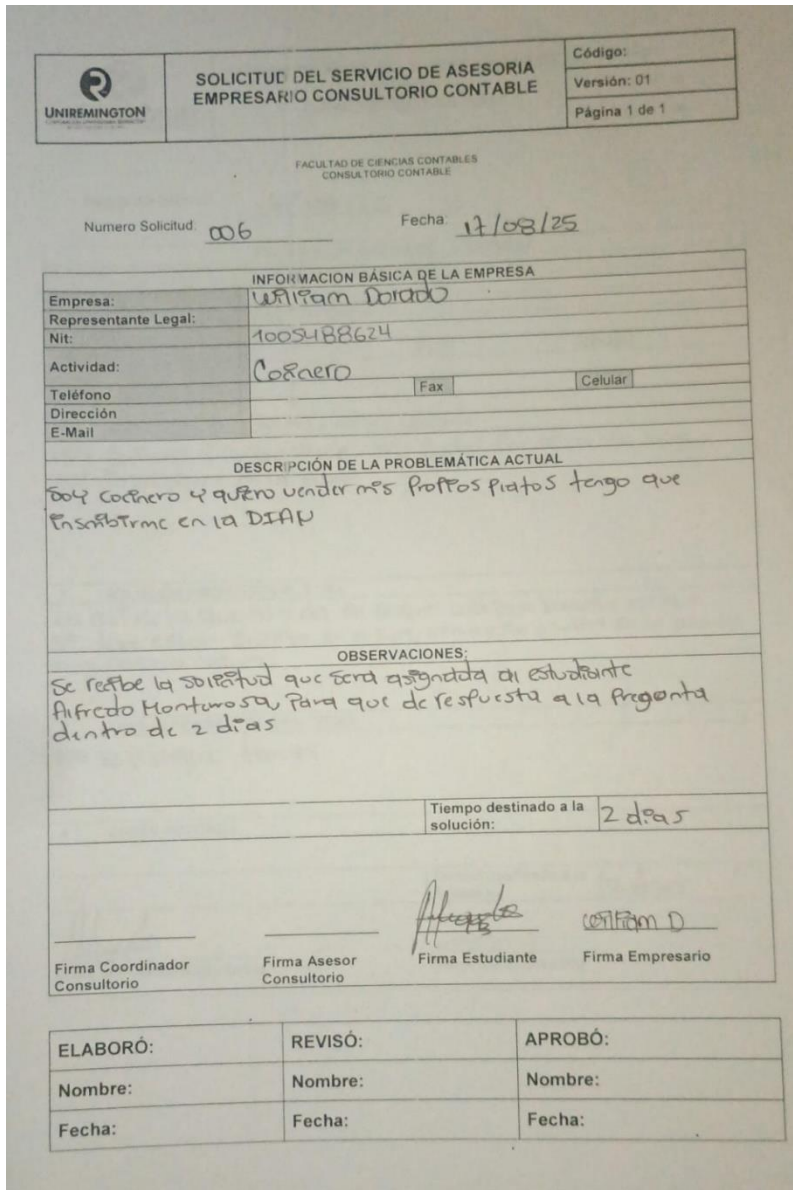 UNIREMINGTON
SOLICITUD DEL SERVICIO DE ASESORIA
EMPRESARIO CONSULTORIO CONTABLE
Código:
Versión: 01
Página 1 de 1
FACULTAD DE CIENCIAS CONTABLES
CONSULTORIO CONTABLE
Numero Solicitud: 006 Fecha: 17/08/25
INFORMACION BÁSICA DE LA EMPRESA
Empresa: William Dorado
Representante Legal:
Nit: 1005488624
Actividad: Cocinero
Teléfono Fax Celular
Dirección
E-Mail
DESCRIPCIÓN DE LA PROBLEMÁTICA ACTUAL
Soy cocinero y quiero vender mis Propios platos tengo que
inscribirme en la DIAN
OBSERVACIONES:
Se recibe la solicitud que sera asignada al estudiante
Alfredo Monterosa, Para que de respuesta a la Pregunta
dentro de 2 dias
Tiempo destinado a la
solución: 2 dias
William D
Firma Coordinador
Consultorio
Firma Asesor
Consultorio
Firma Estudiante
Firma Empresario
ELABORÓ: REVISÓ: APROBÓ:
Nombre: Nombre: Nombre:
Fecha: Fecha: Fecha: